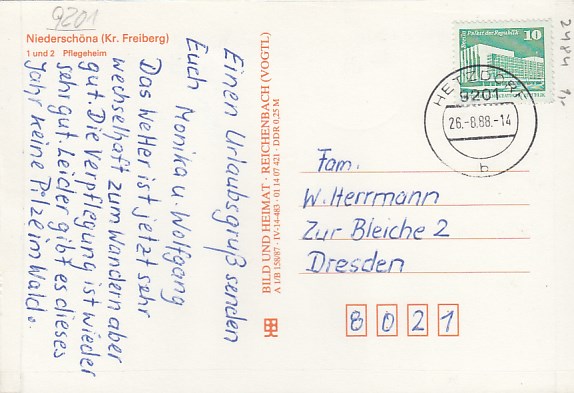 9201
Niederschöna (Kr. Freiberg)
1 und 2 Pflegeheim
Einen Urlaubsgruß senden
Euch Monika u. Wolfgang
Das Wetter ist jetzt sehr
wechselhaft zum Wandern aber
gut. Die Verpflegung ist wieder
sehr gut. Leider gibt es dieses
Jahr keine Pilze im Wald.
BILD UND HEIMAT · REICHENBACH (VOGTL)
A 1/B 158/87 · IV-14-483 · 01 14 07 421 · DDR 0,25 M
Palast der Republik
10
HETZDORF
9201
26.-8.88.-14
b
Fam.
W. Herrmann
Zur Bleiche 2
Dresden
8021